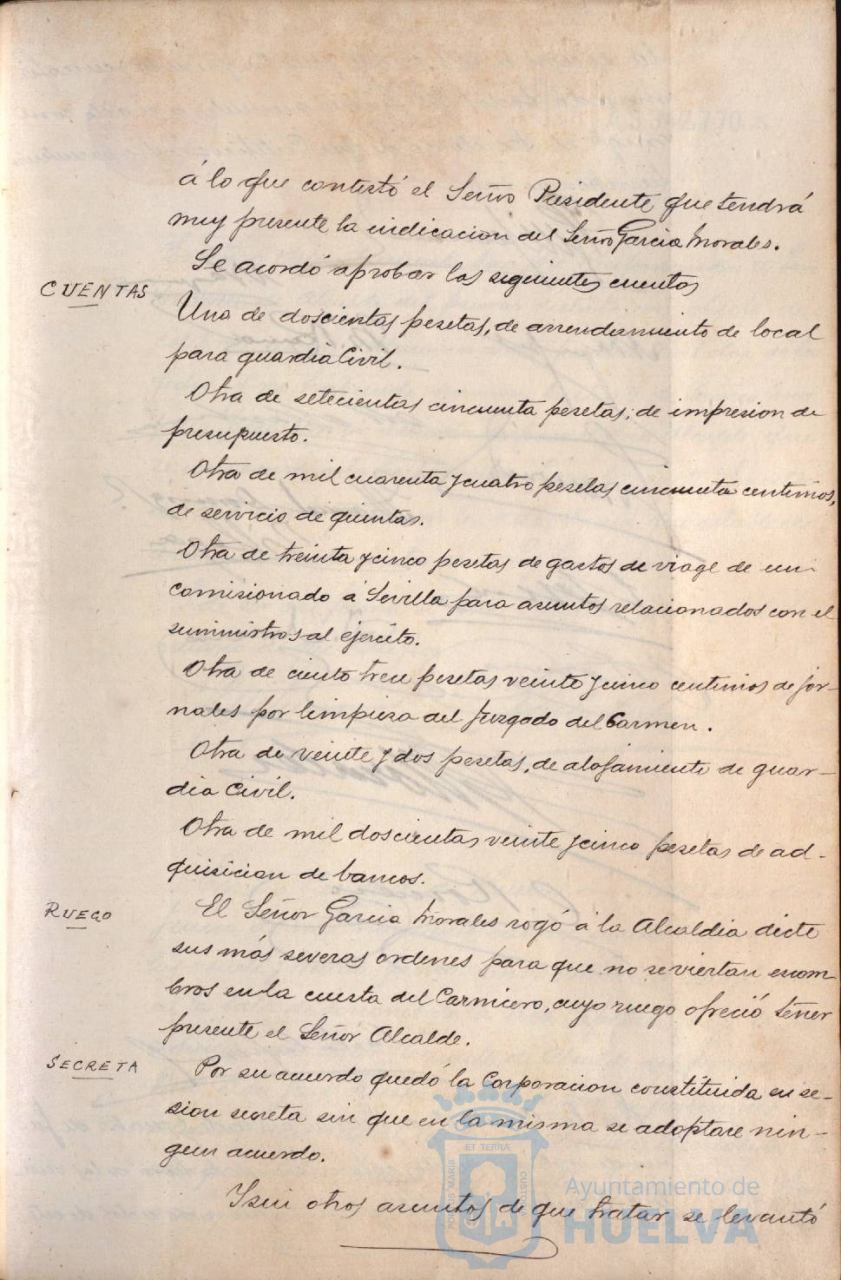 á lo que contestó el Señor Presidente que tendrá
muy presente la indicacion del Señor Garcia Morales.
Se acordó aprobar las siguientes cuentas
CUENTAS
Una de doscientas pesetas, de arrendamiento de local
para guardia Civil.
Otra de setecientas cincuenta pesetas, de impresion de
presupuesto.
Otra de mil cuarenta y cuatro pesetas cincuenta centimos,
de servicio de quintas.
Otra de treinta y cinco pesetas de gastos de viage de un
comisionado á Sevilla para asuntos relacionados con el
suministros al ejército.
Otra de ciento trece pesetas veinte y cinco centimos de jor-
nales por limpieza del Juzgado del Carmen.
Otra de veinte y dos pesetas, de alojamiento de guar-
dia Civil.
Otra de mil doscientas veinte y cinco pesetas de ad-
quisicion de bancos.
RUEGO
El Señor Garcia Morales rogó á la Alcaldia dicte
sus más severas ordenes para que no se viertan escom-
bros en la cuesta del Carnicero, cuyo ruego ofreció tener
presente el Señor Alcalde.
SECRETA
Por su acuerdo quedó la Corporacion constituida en se-
sion secreta sin que en la misma se adoptare nin-
gun acuerdo.
Y sin otros asuntos de que tratar se levantó
Ayuntamiento de
HUELVA